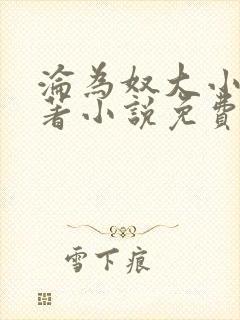 淪為奴大小
著小說免費
雪下痕